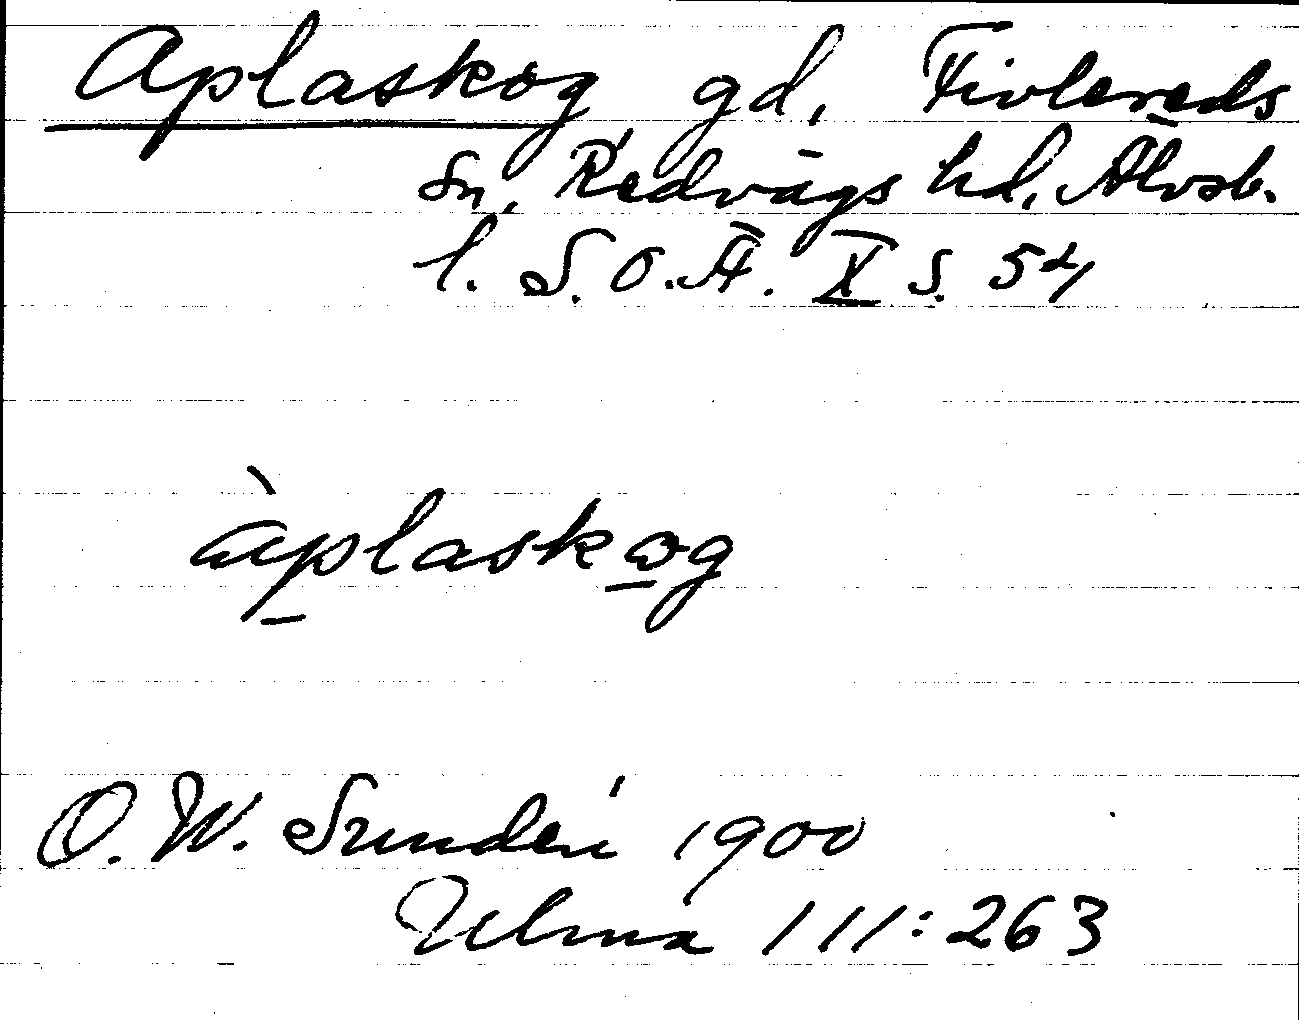 Aplaskog gd, Fivlereds
sn, Redvägs hd, Älvsb.
l. S.O.Ä. X s. 54
àplaskog
O. W. Sundén 1900
Ulma 111:263